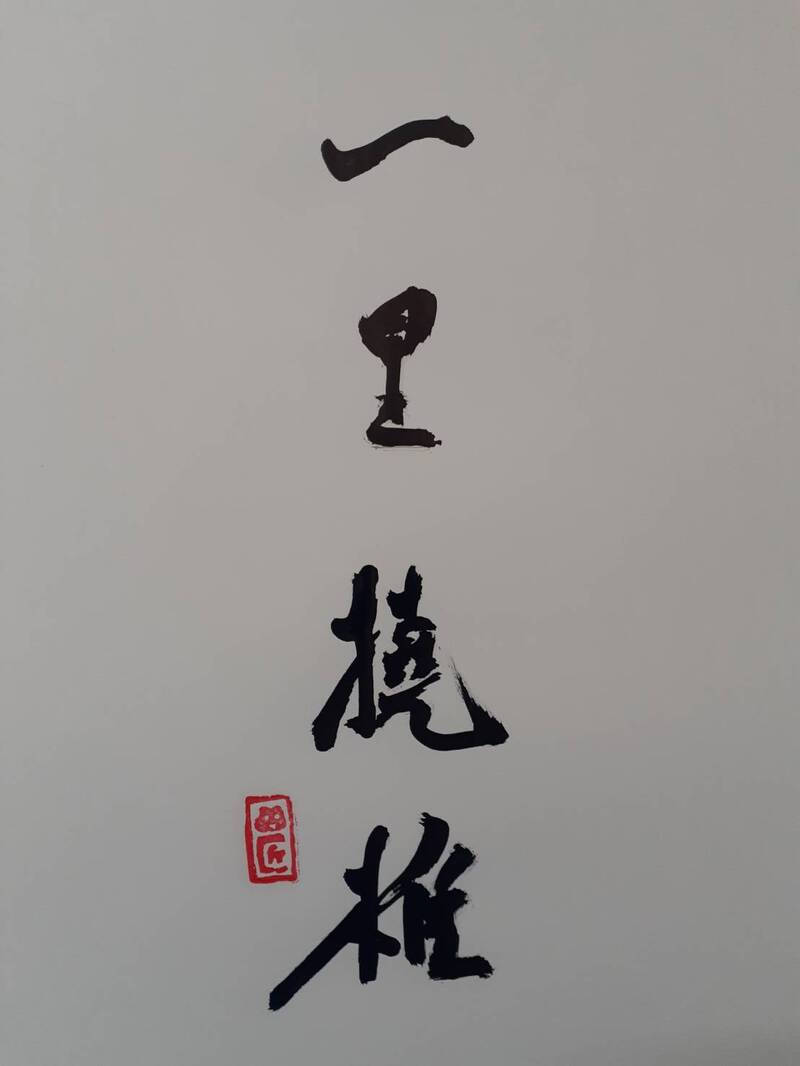 一里撓椎
匠